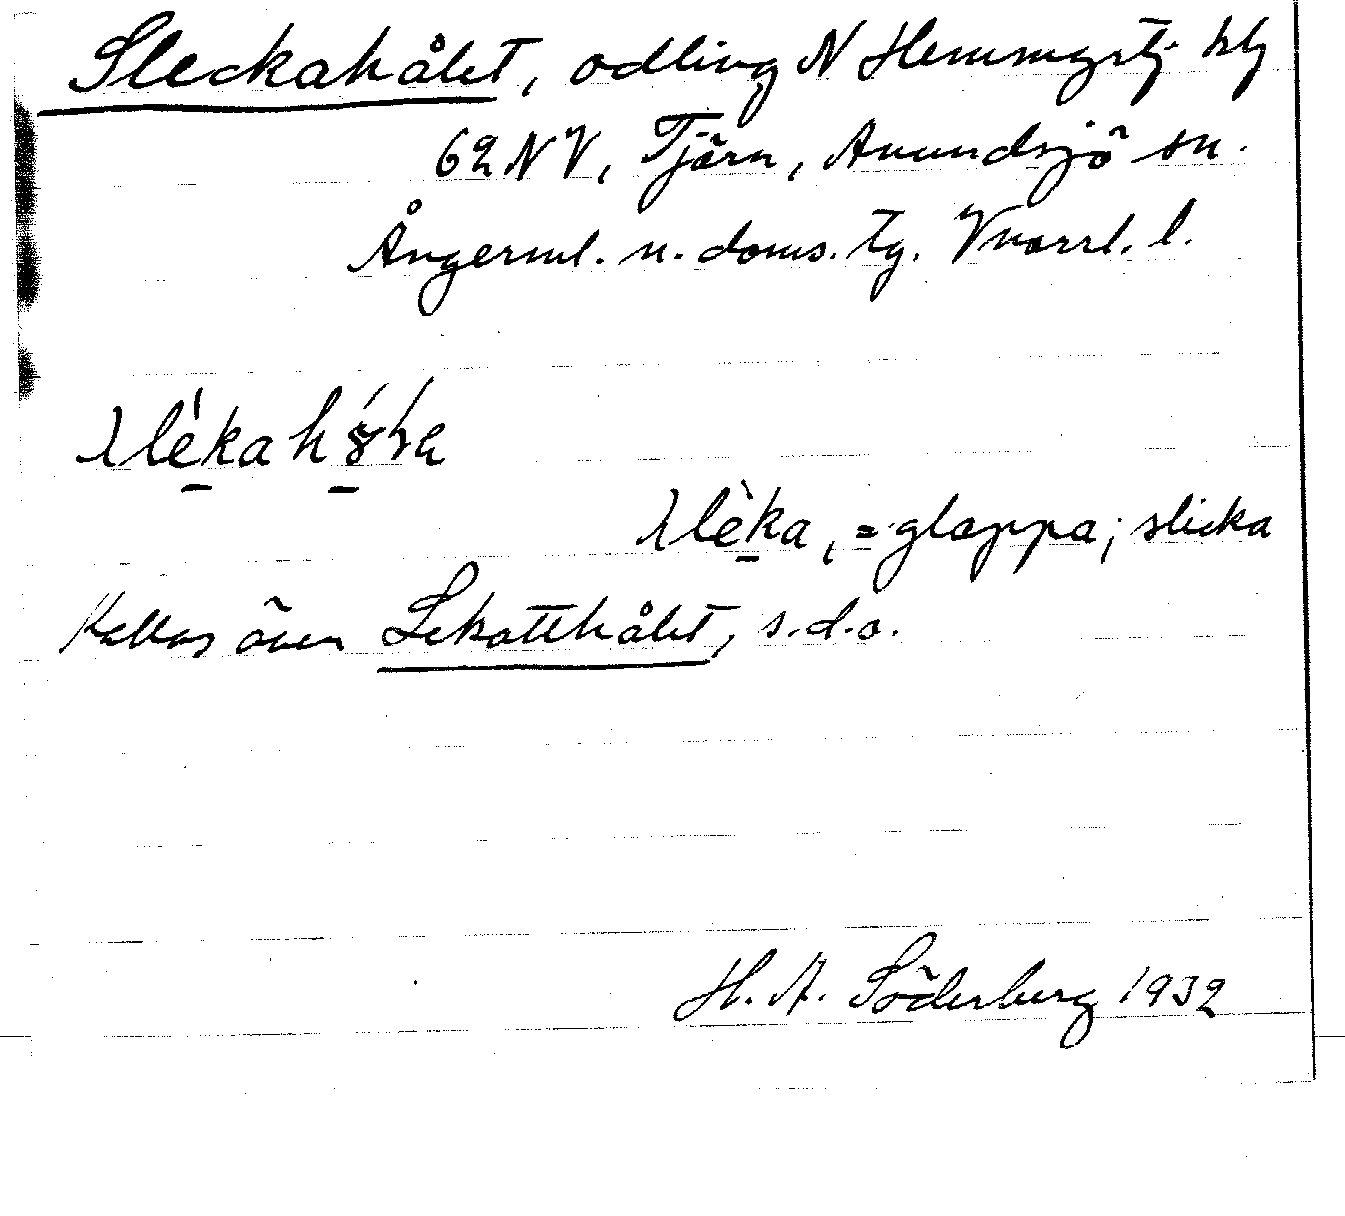 Sleckahålet, odling N Hemmgstj. hlg
62 NV, Tjärn, Anundsjö sn.
Ångerml. n. doms. tg. Vnorrl. l.
slèka
slèka, = glappa; slicka
Kallas även Lekatthålet, s.d.o.
H. A. Söderberg 1932